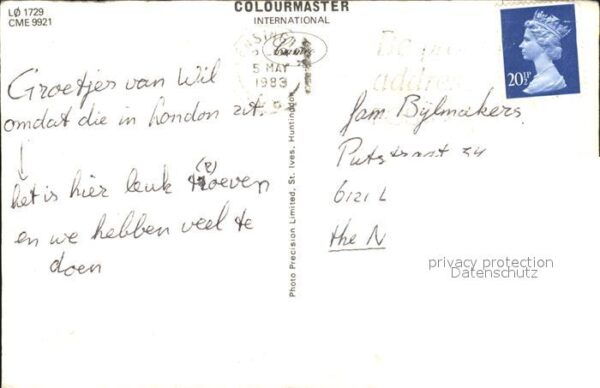 LØ 1729
CME 9921
COLOURMASTER
INTERNATIONAL
5 MAY
1983
20½P
Groetjes van Wil
omdat die in London zit.
het is hier leuk toeven
(P)
en we hebben veel te
doen
Photo Precision Limited, St. Ives, Huntingdon
Jam Bijlmakers
Putstraat 34
6121 L
the N
privacy protection
Datenschutz